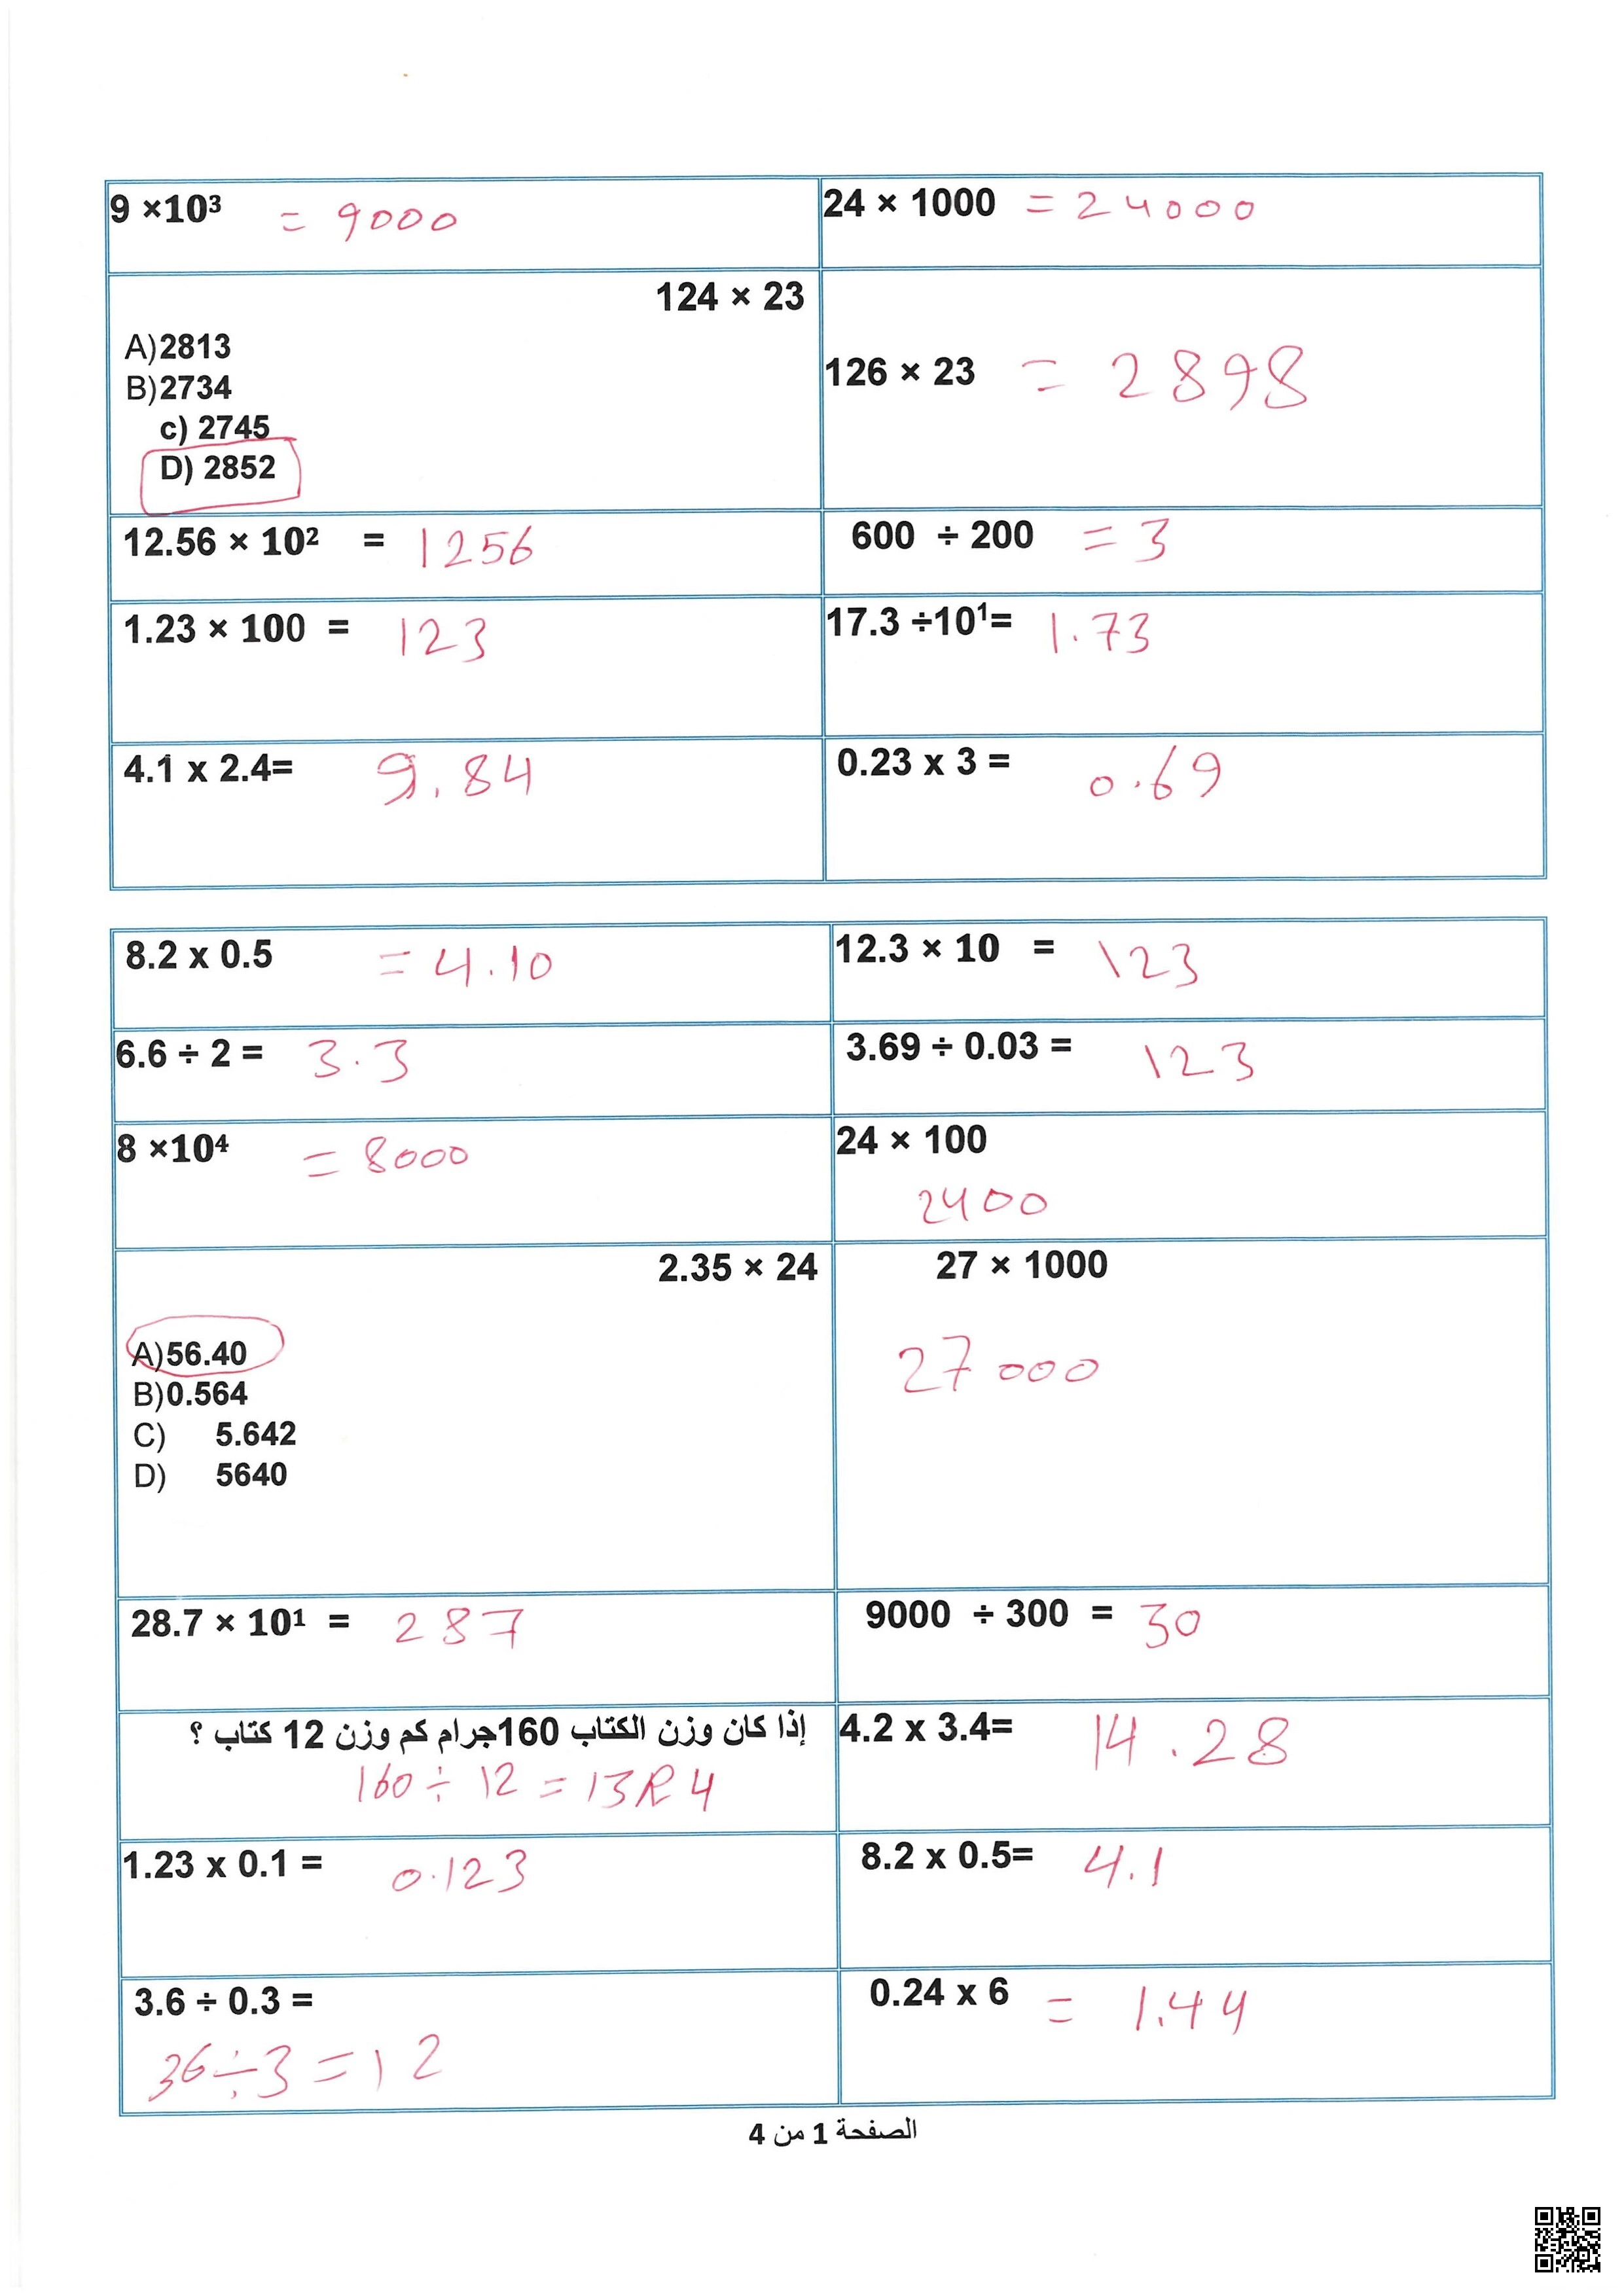 9 ×10³ = 9000
24 × 1000 = 24000
124 × 23
A)2813
B)2734
c) 2745
D) 2852
126 × 23 = 2898
12.56 × 10² = 1256
600 ÷ 200 = 3
1.23 × 100 = 123
17.3 ÷10¹= 1.73
4.1 x 2.4= 9.84
0.23 x 3 = 0.69
8.2 x 0.5 = 4.10
12.3 × 10 = 123
6.6 ÷ 2 = 3.3
3.69 ÷ 0.03 = 123
8 ×10⁴ = 8000
24 × 100
2400
2.35 × 24
A)56.40
B)0.564
C) 5.642
D) 5640
27 × 1000
27000
28.7 × 10¹ = 287
9000 ÷ 300 = 30
إذا كان وزن الكتاب 160جرام كم وزن 12 كتاب ؟
160 ÷ 12 = 13R4
4.2 x 3.4= 14.28
1.23 x 0.1 = 0.123
8.2 x 0.5= 4.1
3.6 ÷ 0.3 =
36÷3 = 12
0.24 x 6 = 1.44
الصفحة 1 من 4